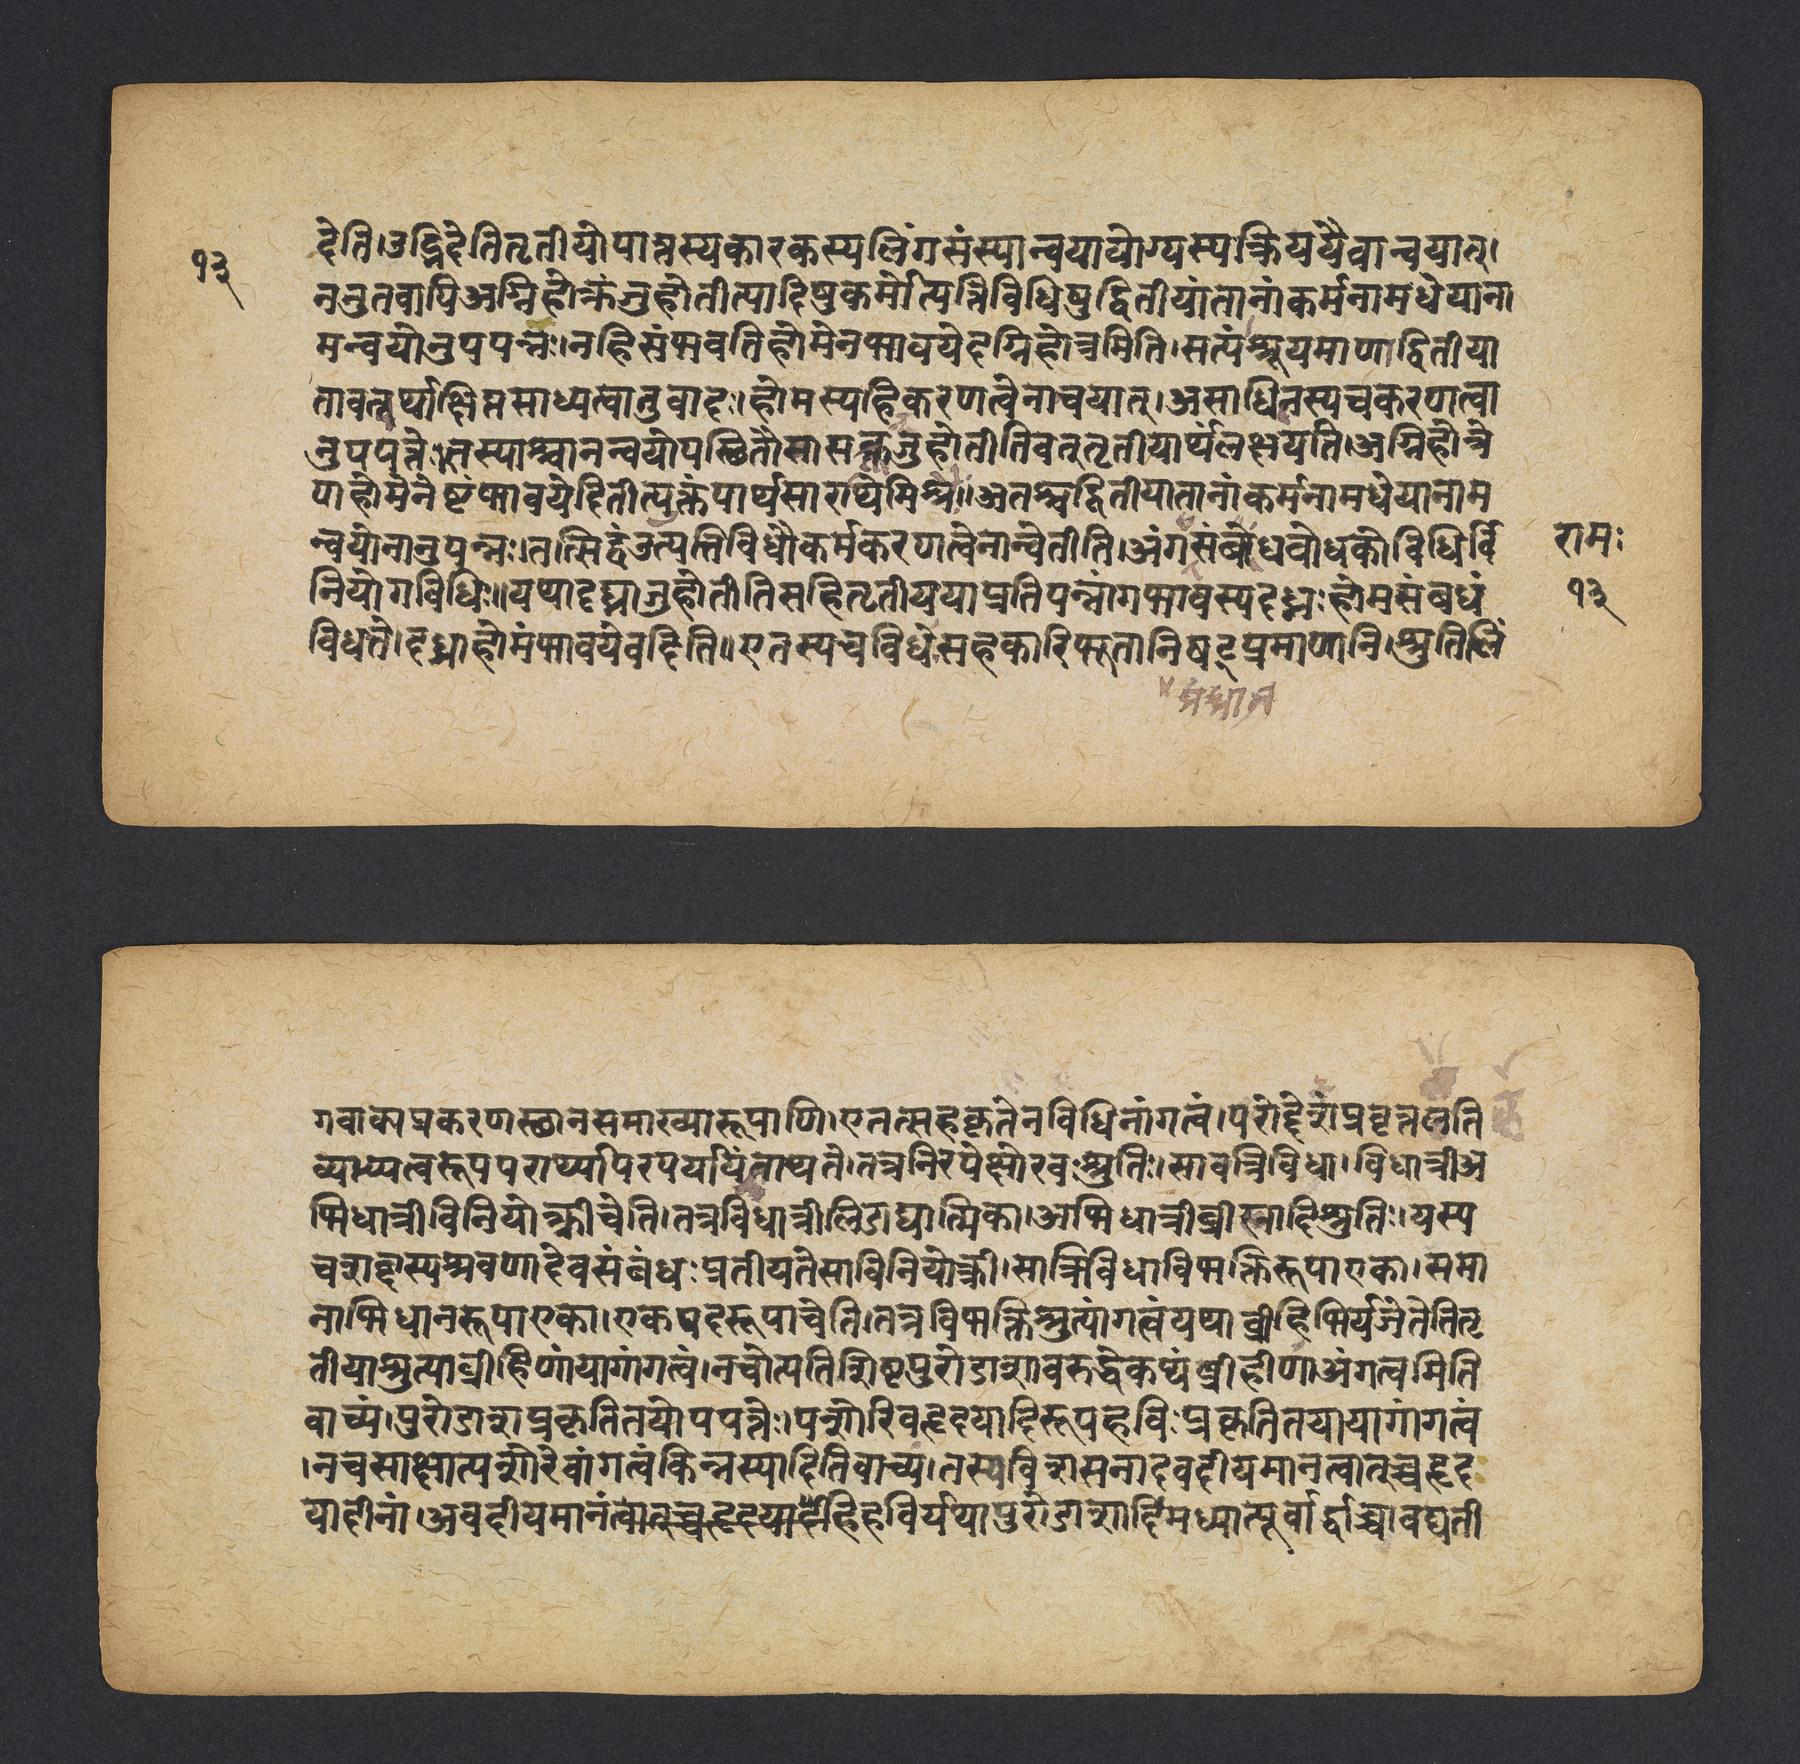 १३
देति।उद्भिदेतितृतीयोपात्तस्यकारकस्यलिंगसंस्यान्वयायोग्यस्यक्रिययैवान्वयात्।
ननुतवापिअग्निहोत्रंजुहोतीत्यादिषुकर्मोत्पत्तिविधिषुद्वितीयांतानांकर्मनामधेयाना
मन्वयोनुपपन्नः।नहिसंभवतिहोमेनभावयेदग्निहोत्रमिति।सत्यंश्रूयमाणाद्वितीया
तावत्वर्थाक्षिप्तसाध्यत्वानुवादः।होमस्यहिकरणत्वेनाचयात्।असाधितस्यचकरणत्वा
नुपपत्तेः।तस्याश्चानन्वयोपस्थितौसासक्तून्जुहोतीतिवत्तृतीयार्थंलक्षयति।अग्निहोत्रे
पाहोमेनेष्टंभावयेदितीत्युक्तंपार्थसारथिमिश्रैः।अतश्चद्वितीयातानांकर्मनामधेयानाम
न्वयोनानुपपन्नः।तत्सिद्धंउत्पत्तिविधौकर्मकरणत्वेनान्वेतीति।अंगसंबंधबोधकोविधिर्वि
रामः
नियोगविधिः॥यथादध्नाजुहोतीतिसहितृतीययाप्रतिपन्नांगभावस्यदध्नःहोमसंबधं
१३
विधत्ते।दध्नाहोमंभावयेवदिति॥एतस्यचविधेःसहकारिभूतानिषट्प्रमाणानि।श्रुतिलिं
गवाक्यप्रकरणस्थानसमाख्यारूपाणि।एतत्सहकृतेनविधिनांगत्वं।परोद्देशप्रवृत्तकृति
व्याप्यत्वरूपपरार्थ्यापरपर्यायंज्ञाप्यते।तत्रनिरपेक्षोरवःश्रुतिः।सावत्रिविधा।विधात्रीअ
भिधात्रीविनियोक्त्रीचेति।तत्रविधात्रीलिङाद्यात्मिका।अभिधात्रीव्रीह्यादिश्रुतिः।यस्य
चशब्दस्यश्रवणादेवसंबंधःप्रतीयतेसाविनियोक्त्री।सात्रिविधाविभक्तिरूपाएका।समा
नाभिधानरूपाएका।एकपदरूपाचेति।तत्रविभक्तिश्रुत्यांगत्वंयथाव्रीहिभिर्यजेतेतितृ
तीयाश्रुत्याव्रीहिणांयागांगत्वं।नचोत्पतिशिष्टपुरोडाशावरुद्धेकथंव्रीहीणाअंगत्वमिति
वाच्यं।पुरोडाशप्रकृतितयोपपत्तेः।पशोरिवहृदयादिरूपहविःप्रकृतितयायागांगत्वं
।नचसाक्षात्पशोरेवांगत्वंकिन्नस्यादितिवाच्यं।तस्यविशसनादवदीयमानत्वात्च्चहृद
यादीनां।अवदीयमानंत्वात्च्चहृदयादीहिहविर्यथापुरोडाशादिमध्यात्पूर्वार्द्धाच्चावद्यती